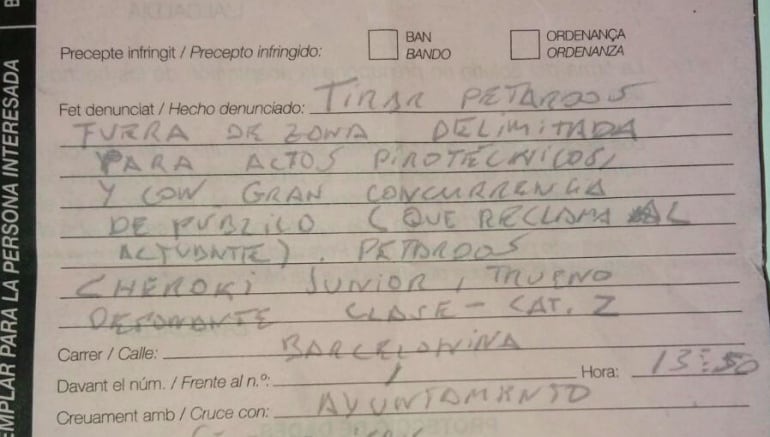 BAN
BANDO
ORDENANÇA
ORDENANZA
Precepte infringit / Precepto infringido:
Fet denunciat / Hecho denunciado: TIRAR PETARDOS
FUERA DE ZONA DELIMITADA
PARA ACTOS PIROTÉCNICOS,
Y CON GRAN CONCURRENCIA
DE PUBLICO (QUE RECLAMA AL
ACTUANTE). PETARDOS
CHEROKI JUNIOR, TRUENO
DETONANTE CLASE - CAT. 2
Carrer / Calle: BARCELONINA
Davant el núm. / Frente al n.º: / Hora: 13:50
Creuament amb / Cruce con: AYUNTAMIENTO
EMPLAR PARA LA PERSONA INTERESADA